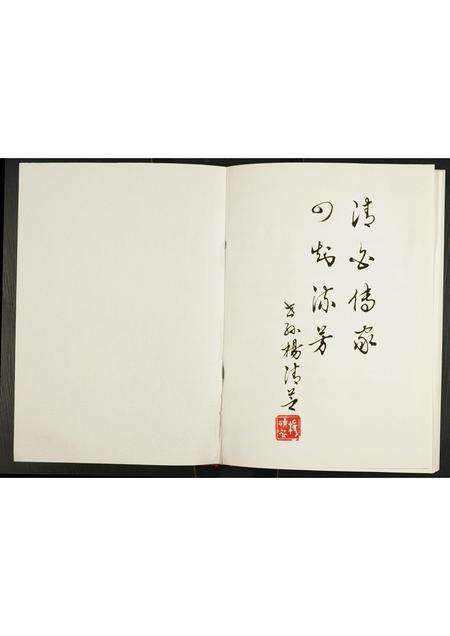 清白傳家
四知流芳
孫楊清